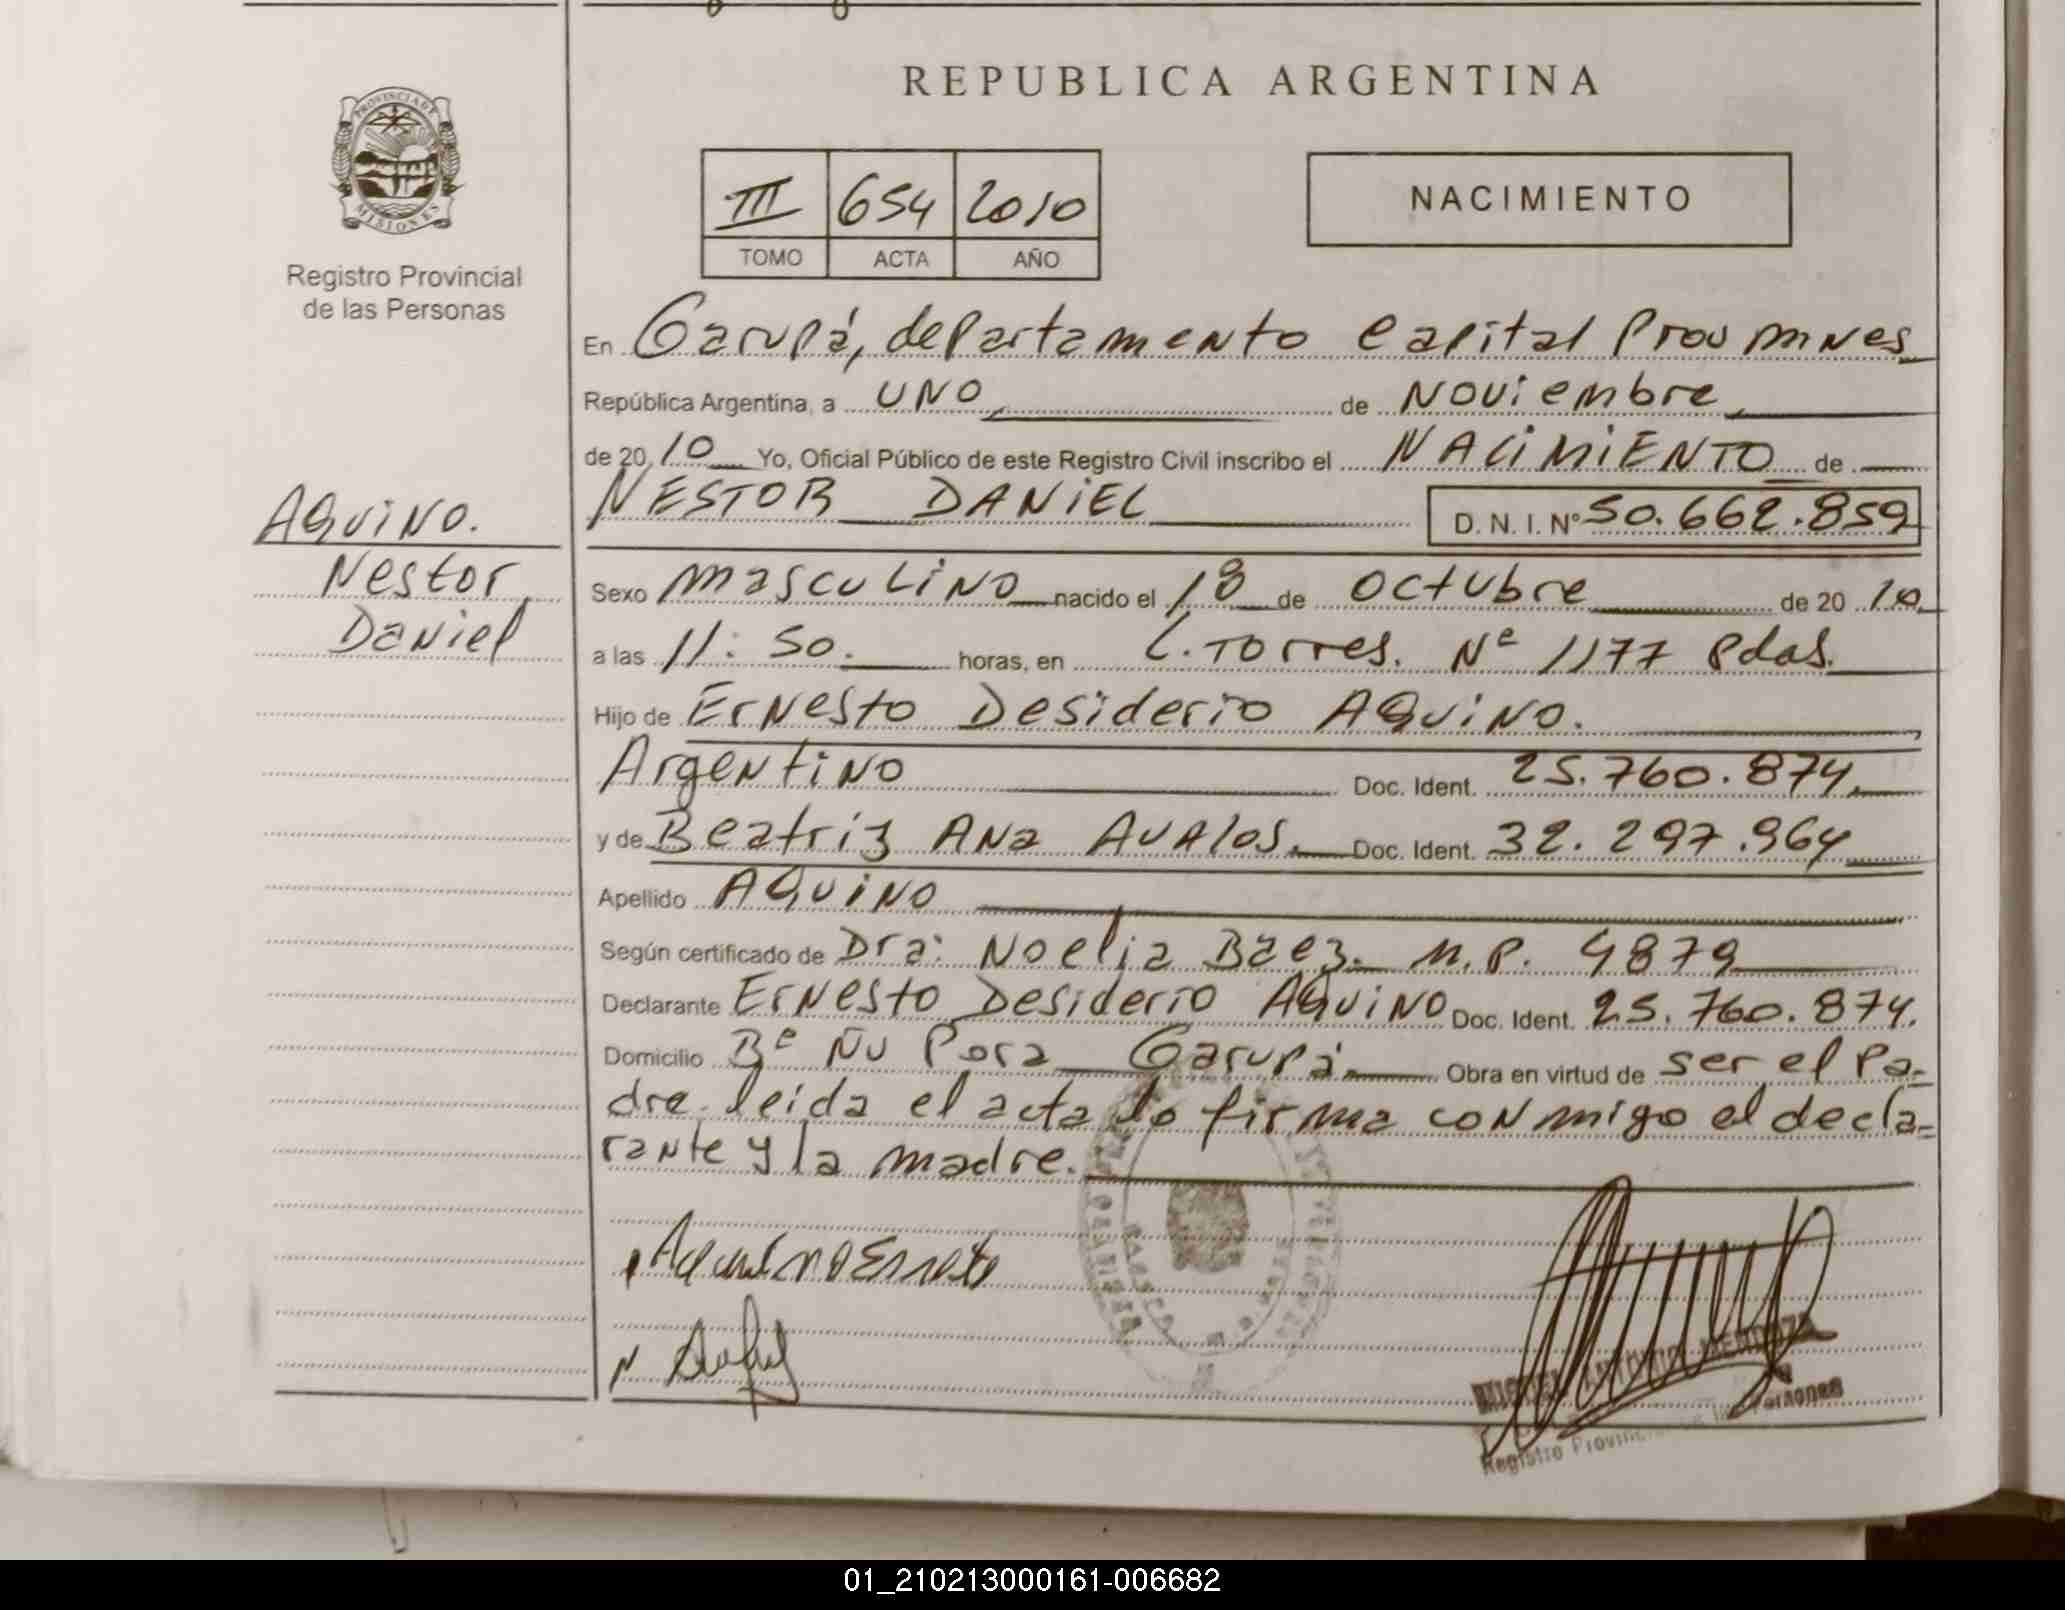 REPUBLICA ARGENTINA
PROVINCIA DE
MISIONES
Registro Provincial
de las Personas
III 654 2010
TOMO ACTA AÑO
NACIMIENTO
En Garupá, departamento Capital Prov mnes
República Argentina, a UNO de Noviembre,
de 20 10 Yo, Oficial Público de este Registro Civil inscribo el NACIMIENTO de
NESTOR DANIEL D.N.I. Nº 50.662.859
AQUINO.
Nestor
Daniel
Sexo masculino nacido el 18 de octubre de 20 10
a las 11:50. horas, en L. Torres. Nº 1177 Pdas.
Hijo de Ernesto Desiderio AQUINO.
Argentino Doc. Ident. 25.760.874
y de Beatriz Ana Avalos. Doc. Ident. 32.297.964
Apellido AQUINO
Según certificado de Dra: Noelia Baez. M.P. 4879
Declarante Ernesto Desiderio AQUINO Doc. Ident. 25.760.874.
Domicilio Bº Ñu Pora Garupá. Obra en virtud de ser el Pa-
dre. leida el acta lo firma conmigo el decla-
rante y la madre.
Aquino Ernesto
MIGUEL ANTONIO MENDOZA
Registro Provincial de las Personas
01_210213000161-006682